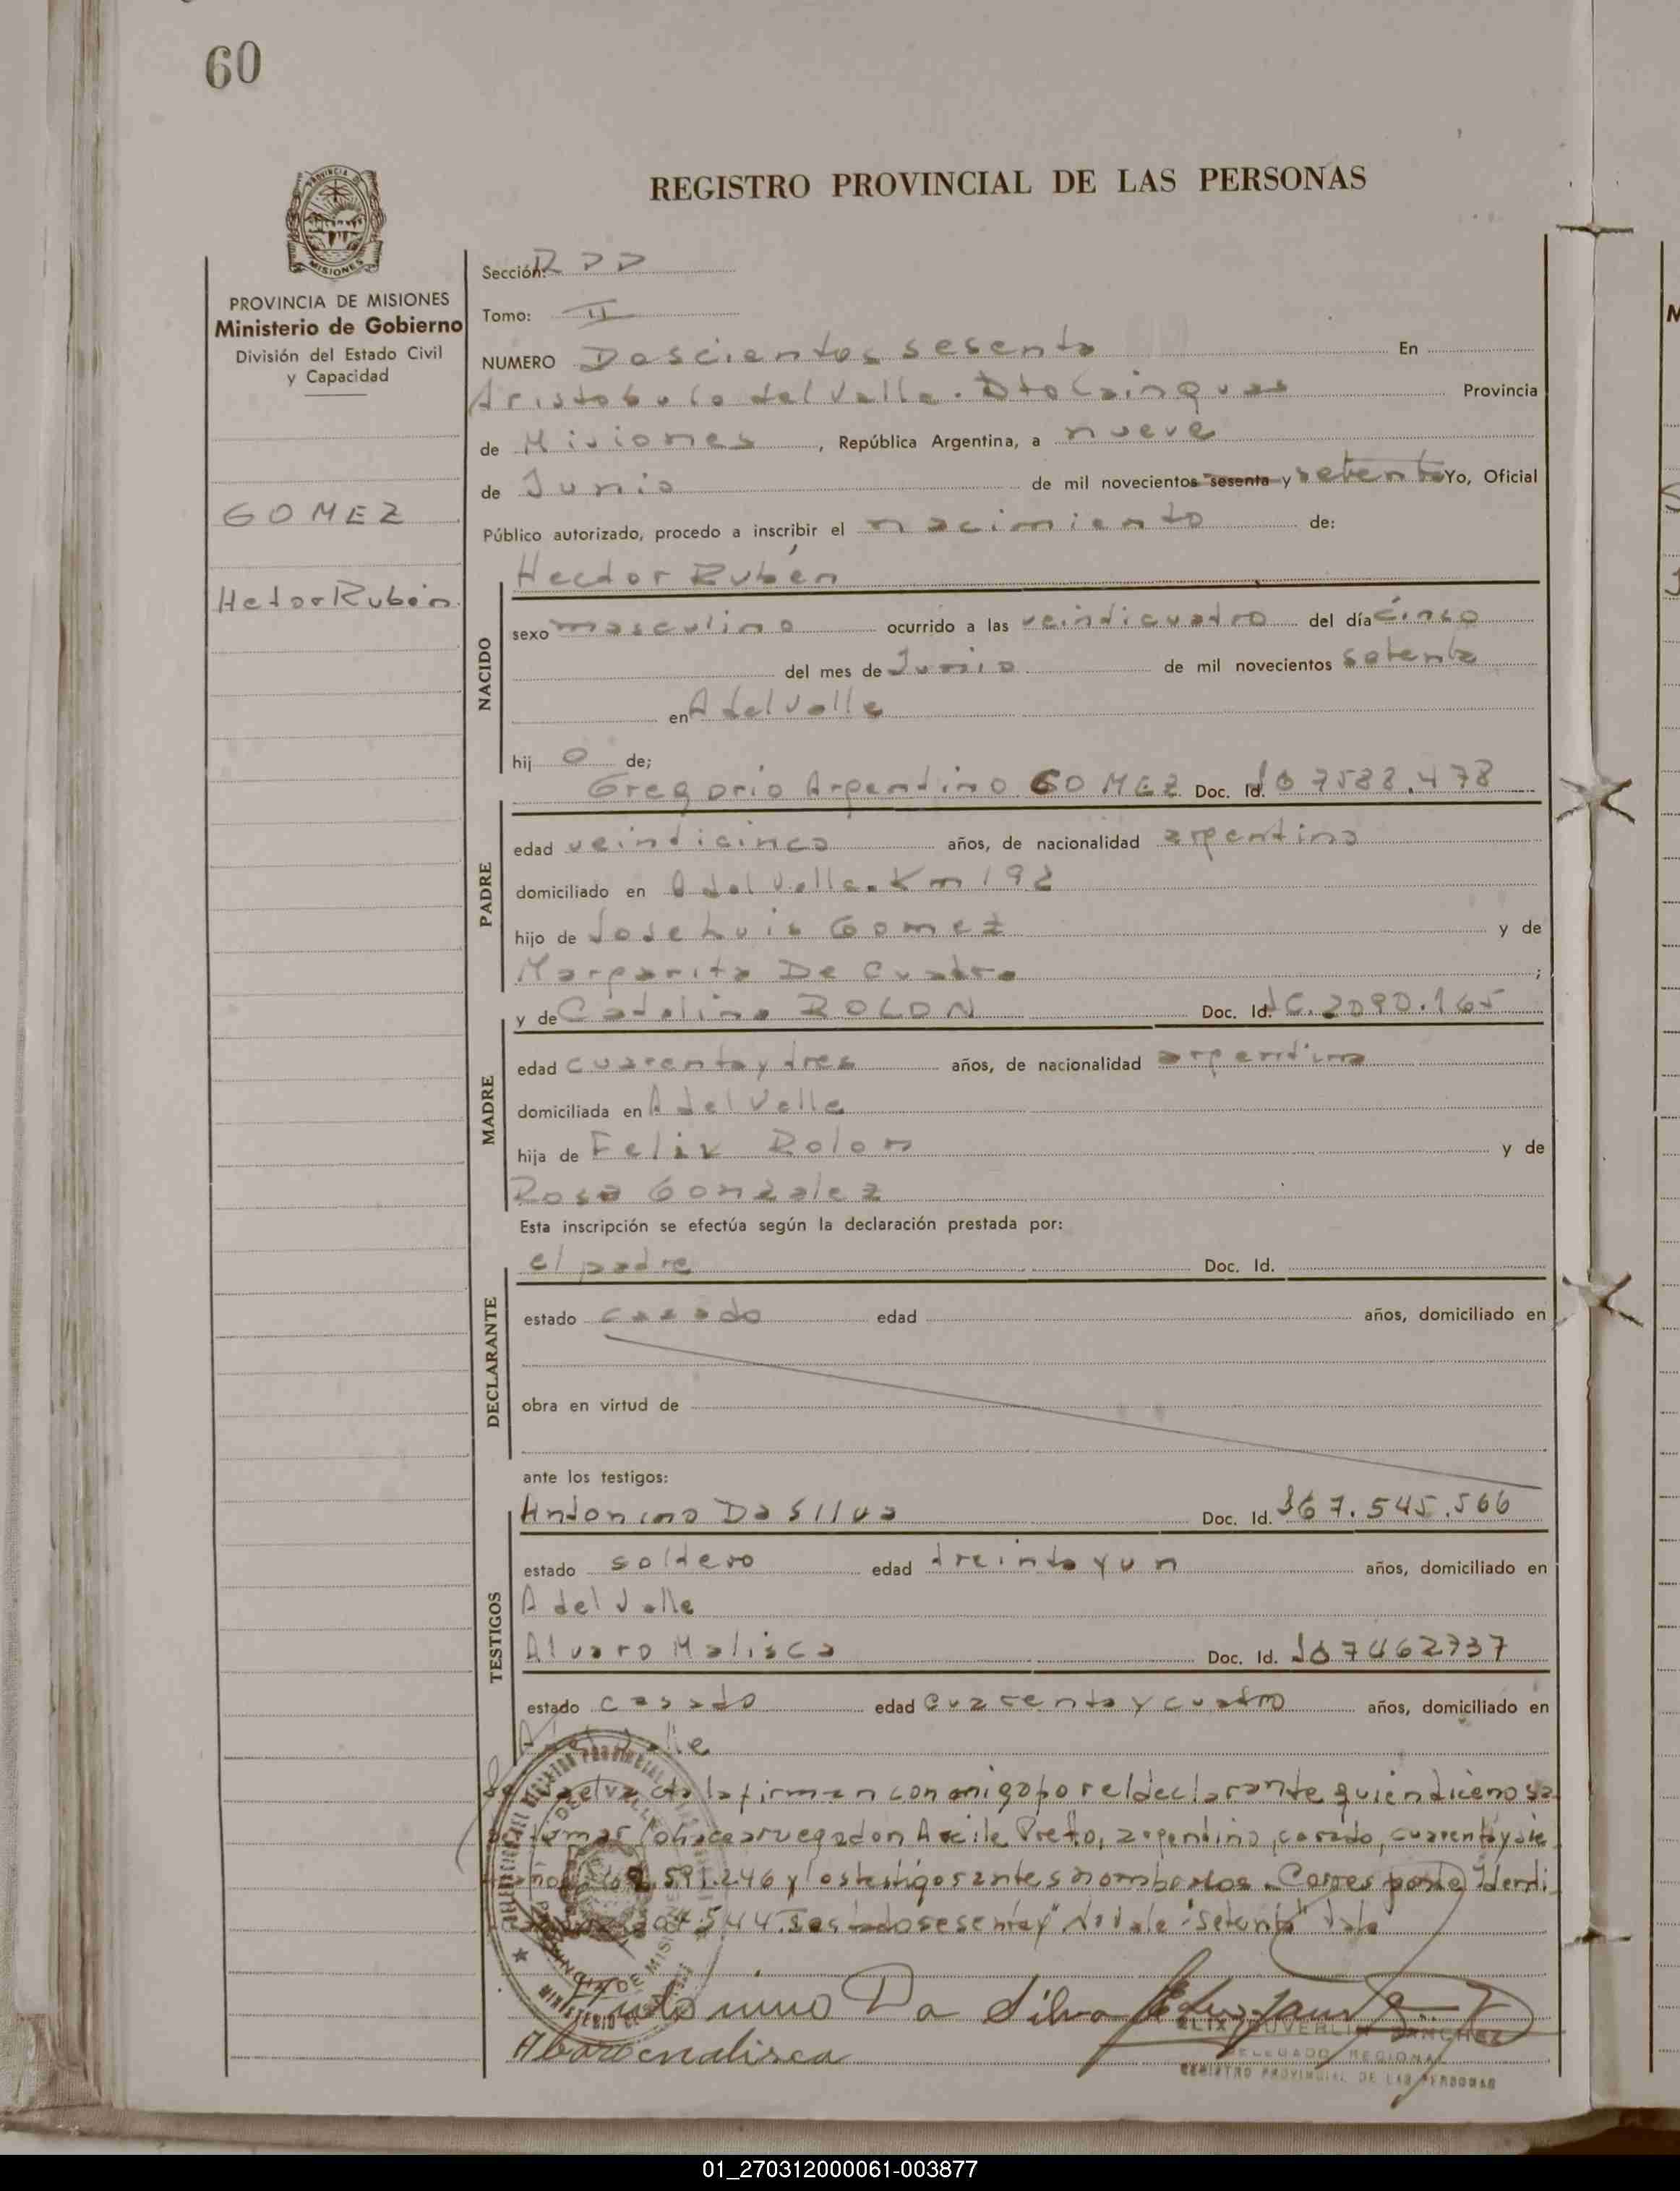 60
REGISTRO PROVINCIAL DE LAS PERSONAS
PROVINCIA DE
MISIONES
PROVINCIA DE MISIONES
Ministerio de Gobierno
División del Estado Civil
y Capacidad
GOMEZ
Hector Rubén
Sección:
Tomo: II
NUMERO Doscientos sesenta En
Aristobulo del Valle. Dto Cainguas Provincia
de Misiones, República Argentina, a nueve
de Junio de mil novecientos "sesenta y setenta Yo, Oficial
Público autorizado, procedo a inscribir el nacimiento de:
Hector Rubén
NACIDO
sexo masculino ocurrido a las veinticuatro del día cinco
del mes de Junio de mil novecientos setenta
en A del Valle
hij o de;
Gregorio Argentino GOMEZ Doc. Id. 7588.478
PADRE
edad veinticinco años, de nacionalidad argentina
domiciliado en A del Valle. Km 192
hijo de Jose Luis Gomez y de
Margarita De Cuadro ;
y de Catalina ROLON Doc. Id. LC. 2090.165
MADRE
edad cuarenta y tres años, de nacionalidad argentina
domiciliada en A del Valle
hija de Felix Rolon y de
Rosa Gonzalez
Esta inscripción se efectúa según la declaración prestada por:
el padre Doc. Id.
DECLARANTE
estado casado edad años, domiciliado en
obra en virtud de
ante los testigos:
TESTIGOS
Antonino Da Silva Doc. Id. 7.545.566
estado soltero edad treinta y un años, domiciliado en
A del Valle
Alvaro Malisca Doc. Id. 7462737
estado casado edad cuarenta y cuatro años, domiciliado en
A del Valle
acta la firman conmigo por el declarante quien dice no sa
firmar lo hace a ruego don Prieto, argentino, casado, cuarenta y sie
591.246 y los testigos antes nombrados. Corresponde Identi
544. Testado sesenta y" No vale "setenta" Vale
Antonino Da Silva
Alvaro malisca
SANCHEZ
DELEGADO REGIONAL
REGISTRO PROVINCIAL DE LAS PERSONAS
01_270312000061-003877